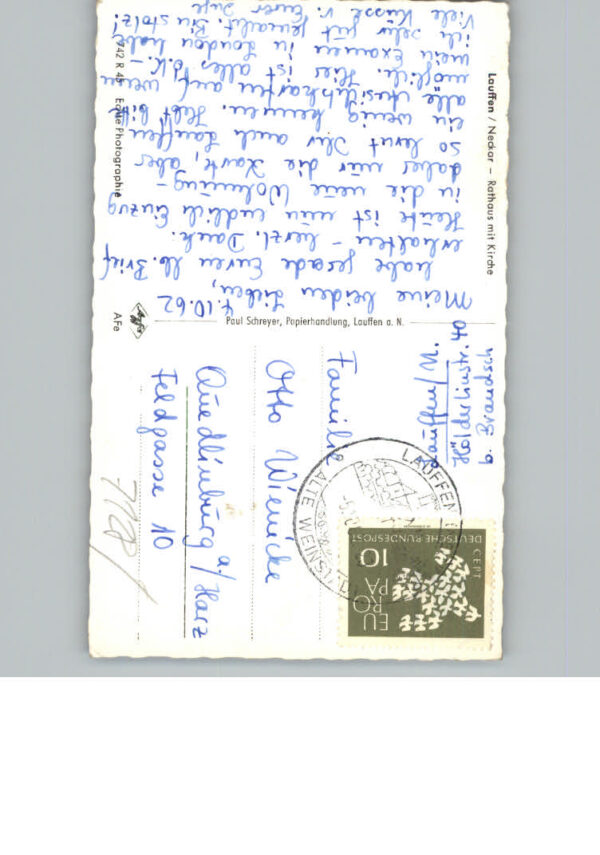 Lauffen / Neckar – Rathaus mit Kirche
4.10.62
Meine beiden Lieben,
habe gerade Euren lb. Brief
erhalten – herzl. Dank.
Heute ist nun endlich Einzug
in die neue Wohnung –
daher nur die Karte, aber
so lernt Ihr auch Lauffen
ein wenig kennen. Habt Ihr
alle Ansichtskarten auf
möglich. Hier ist alles o.K. –
mein Examen in London habe
ich sehr gut gemacht. Bin stolz!
Viele Küsse v. Eurer
742 R 45 Echte Photographie
Paul Schreyer, Papierhandlung, Lauffen a. N.
Agfa
AFe
Lauffen/N.
Hölderlinstr. 40
b. Brandsch
Familie
Otto Wienicke
Quedlinburg a/Harz
Feldgasse 10
LAUFFEN
ALTE WEINSTADT
EUROPA
CEPT
10
DEUTSCHE BUNDESPOST